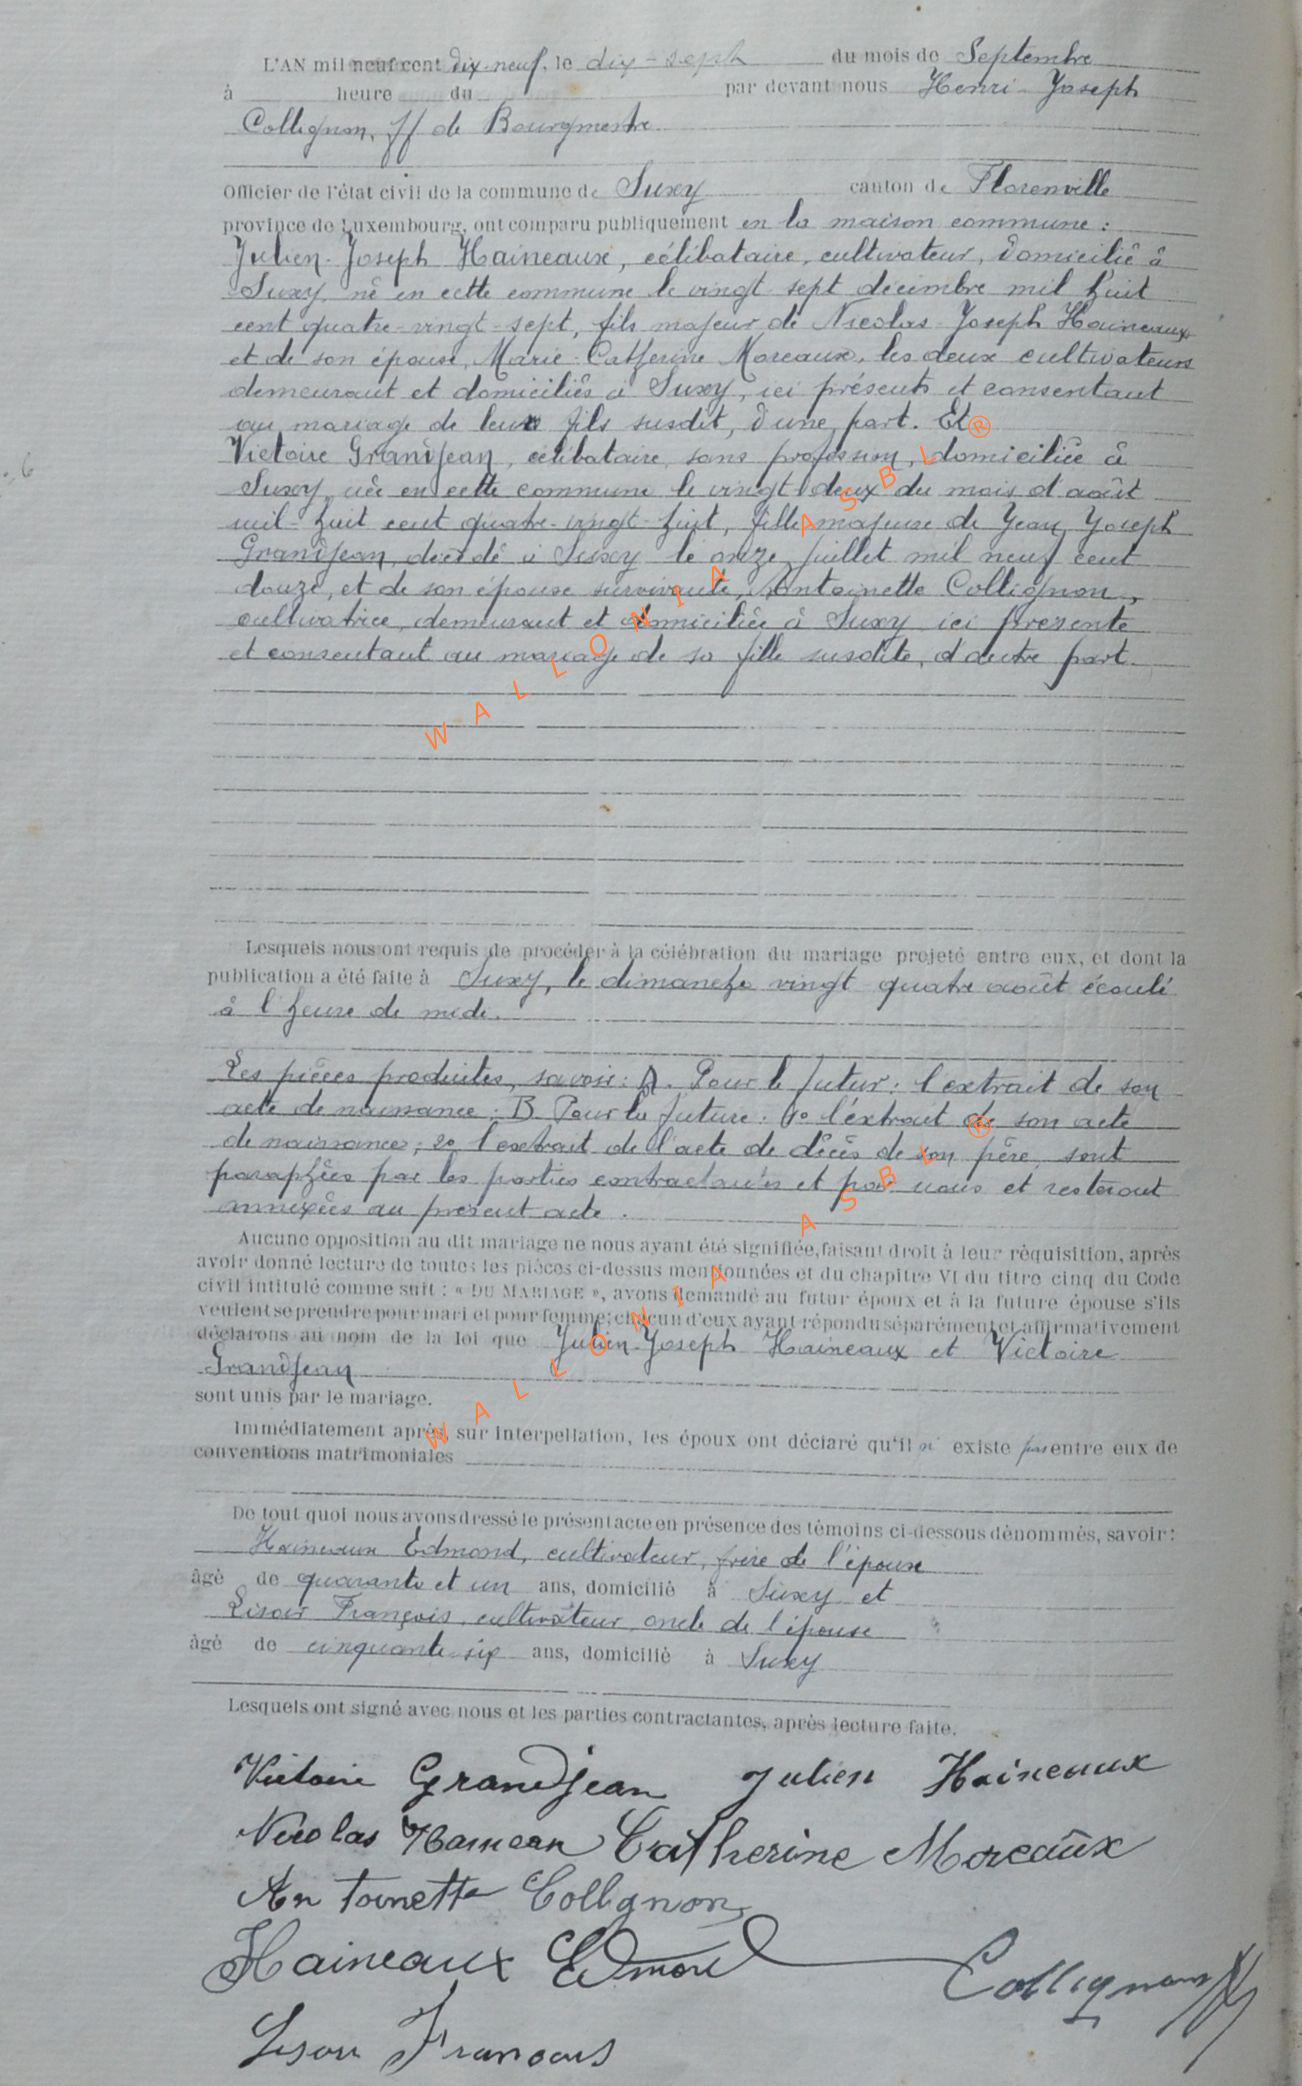 L'AN mil neuf cent dix-neuf, le dix-sept du mois de Septembre
à heure du par devant nous Henri-Joseph
Collignon, ff de Bourgmestre
Officier de l'état civil de la commune de Suxy canton de Florenville
province de Luxembourg, ont comparu publiquement en la maison commune :
Julien-Joseph Haineaux, célibataire, cultivateur, domicilié à
Suxy, né en cette commune le vingt sept décembre mil huit
cent quatre-vingt-sept, fils majeur de Nicolas-Joseph Haineaux
et de son épouse, Marie-Catherine Moreaux, les deux cultivateurs
demeurant et domiciliés à Suxy, ici présents et consentant
au mariage de leur fils susdit, d'une part. Et
Victoire Grandjean, célibataire, sans profession, domiciliée à
Suxy, née en cette commune le vingt deux du mois d'août
mil-huit cent quatre-vingt-huit, fille majeure de Jean Joseph
Grandjean, décédé à Suxy le onze juillet mil neuf cent
douze, et de son épouse survivante, Antoinette Collignon,
cultivatrice, demeurant et domiciliée à Suxy, ici présente
et consentant au mariage de sa fille susdite, d'autre part.
WALLONIA ASBL ®
Lesquels nous ont requis de procéder à la célébration du mariage projeté entre eux, et dont la
publication a été faite à Suxy, le dimanche vingt quatre août écoulé
à l'heure de midi.
Les pièces produites, savoir : A. Pour le futur : l'extrait de son
acte de naissance ; B Pour la future : 1º l'extrait de son acte
de naissance ; 2º l'extrait de l'acte de décès de son père, sont
paraphées par les parties contractantes et par nous et resteront
annexées au présent acte.
Aucune opposition au dit mariage ne nous ayant été signifiée, faisant droit à leur réquisition, après
avoir donné lecture de toutes les pièces ci-dessus mentionnées et du chapitre VI du titre cinq du Code
civil intitulé comme suit : « DU MARIAGE », avons demandé au futur époux et à la future épouse s'ils
veulent se prendre pour mari et pour femme ; chacun d'eux ayant répondu séparément et affirmativement
déclarons au nom de la loi que Julien-Joseph Haineaux et Victoire
Grandjean
sont unis par le mariage.
WALLONIA ASBL ®
Immédiatement après, sur interpellation, les époux ont déclaré qu'il n' existe pas entre eux de
conventions matrimoniales
De tout quoi nous avons dressé le présent acte en présence des témoins ci-dessous dénommés, savoir :
Haineaux Edmond, cultivateur, frère de l'époux
âgé de quarante et un ans, domicilié à Suxy et
Lisoir François, cultivateur, oncle de l'épouse
âgé de cinquante-six ans, domicilié à Suxy
Lesquels ont signé avec nous et les parties contractantes, après lecture faite.
Victoire Grandjean Julien Haineaux
Nicolas Haineau Catherine Moreaux
Antoinette Collignon
Haineaux Edmond Collignon ff
Lisoir François